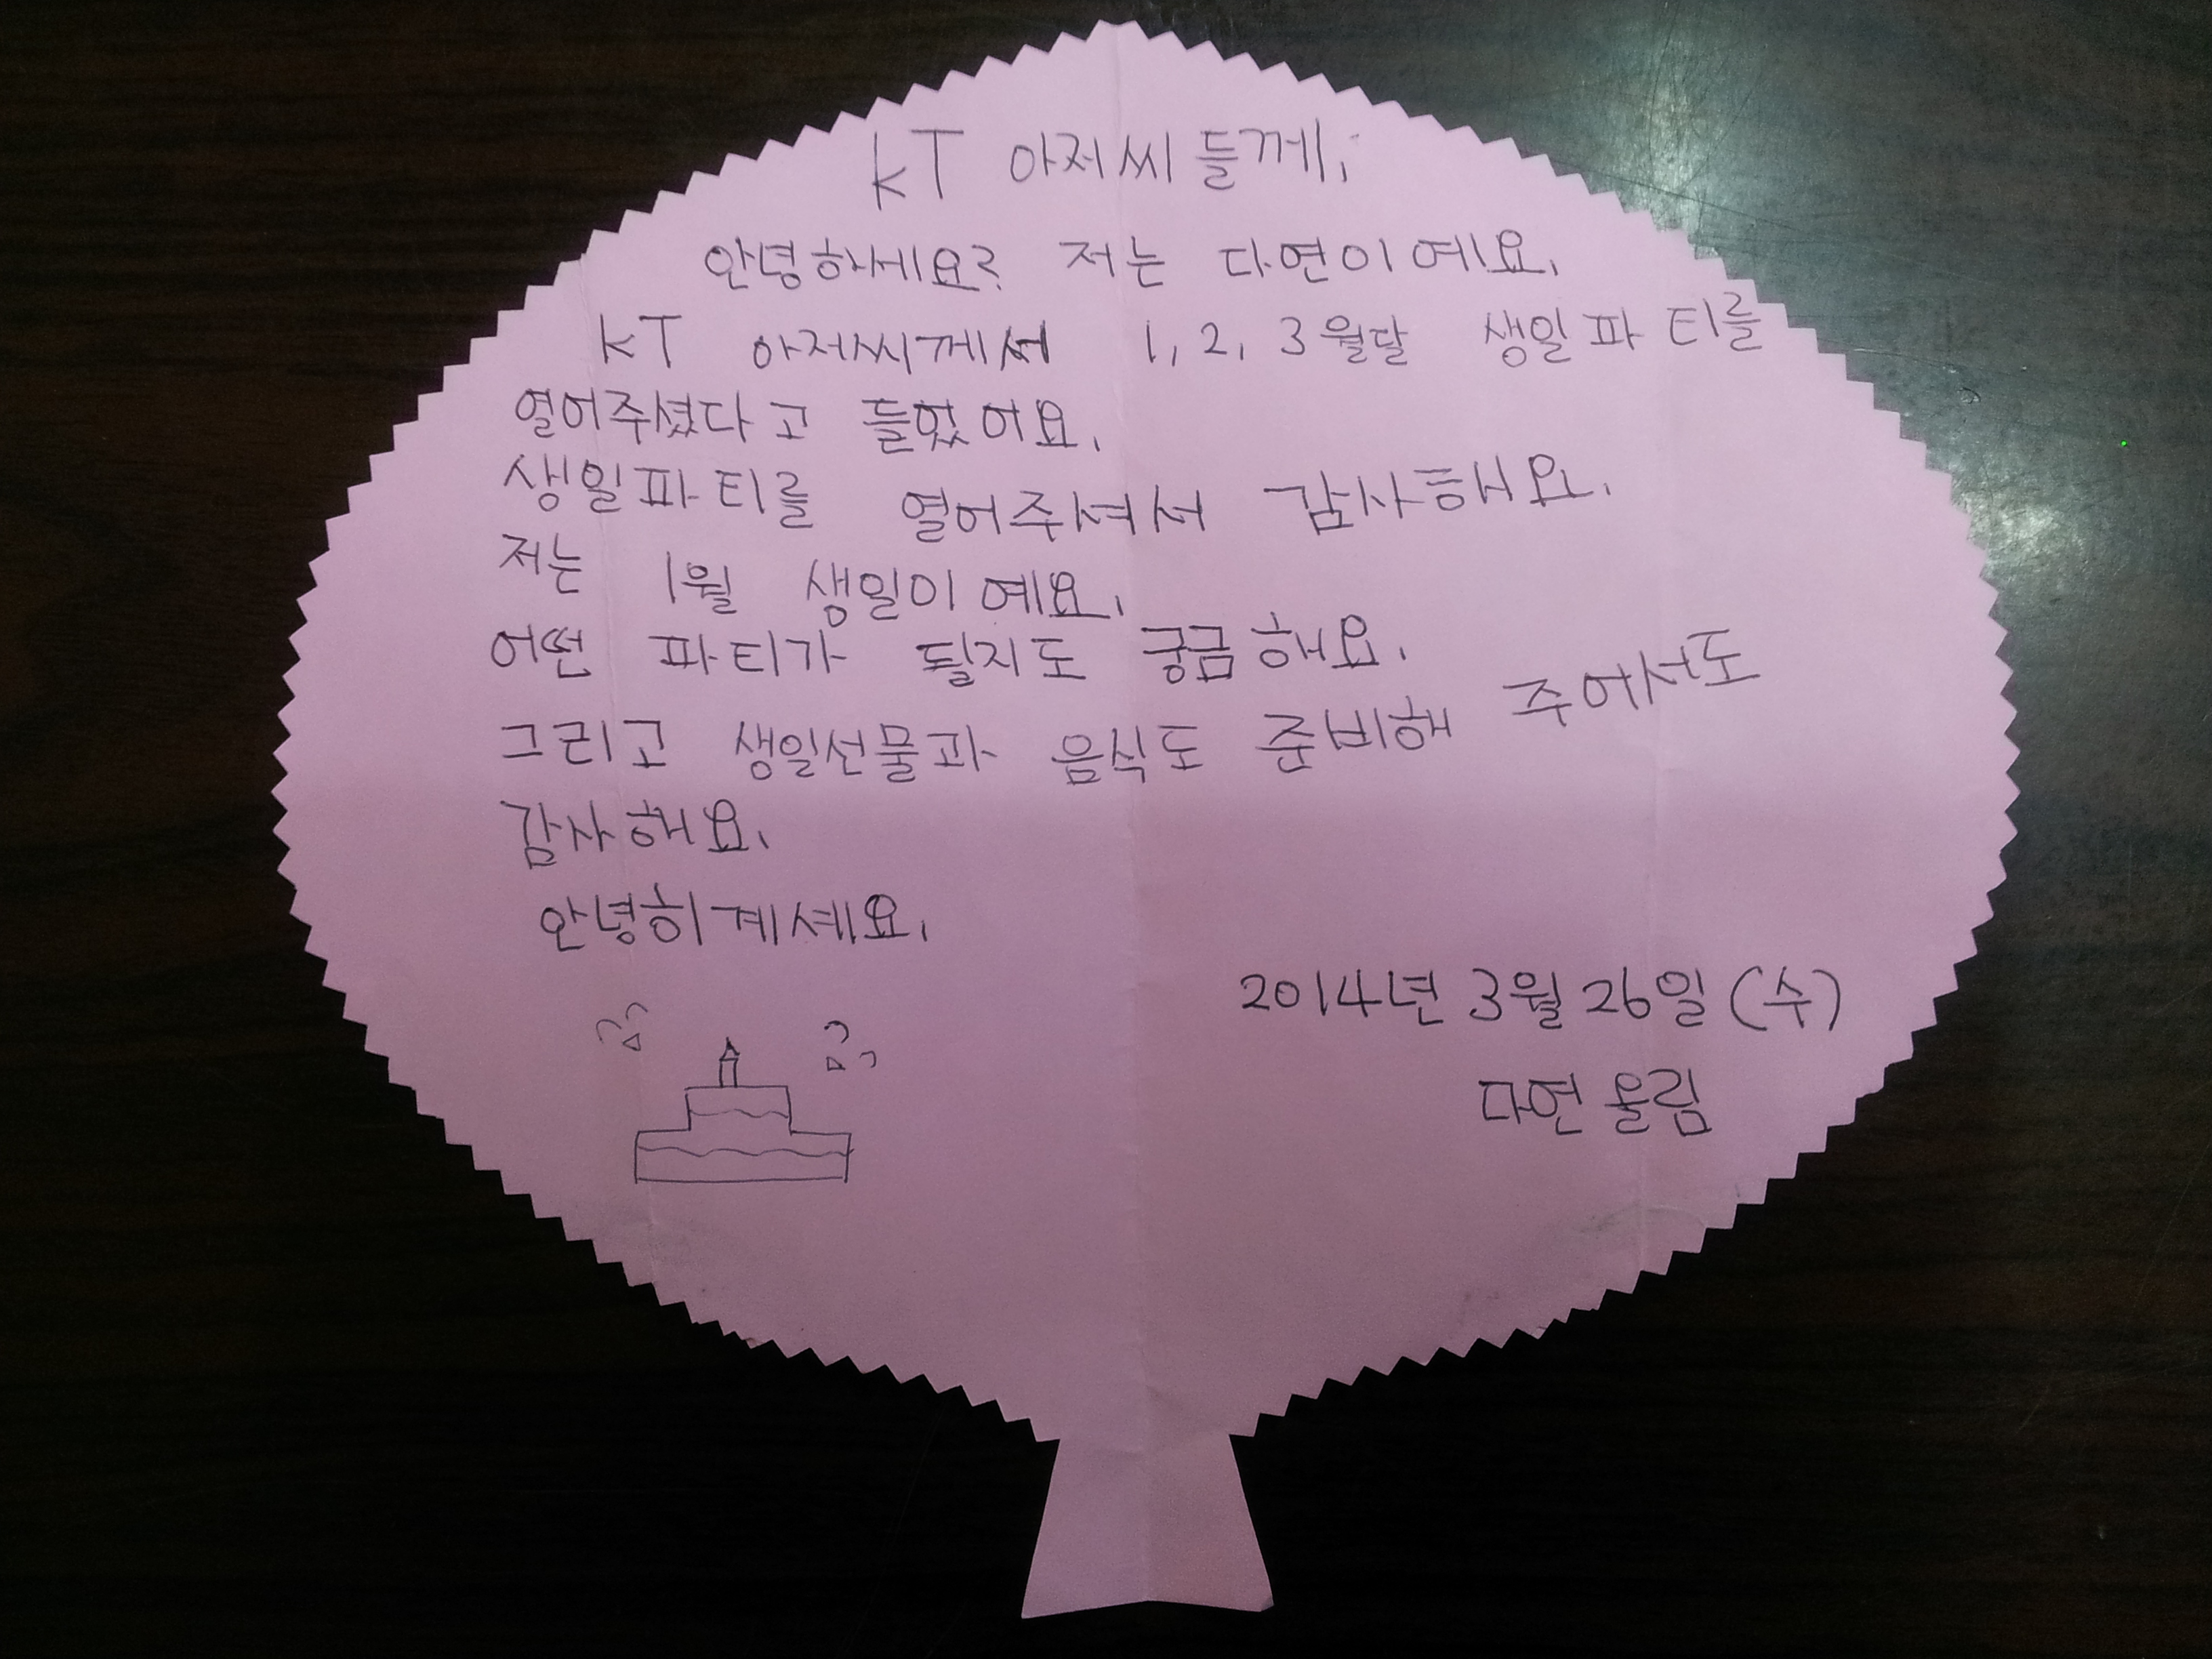 KT 아저씨들께,
안녕하세요? 저는 다연이예요.
KT 아저씨께서 1, 2, 3월달 생일파티를
열어주셨다고 들었어요.
생일파티를 열어주셔서 감사해요.
저는 1월 생일이예요.
어떤 파티가 될지도 궁금해요.
그리고 생일선물과 음식도 준비해 주어서도
감사해요.
안녕히계세요.
2014년 3월 26일 (수)
다연 올림